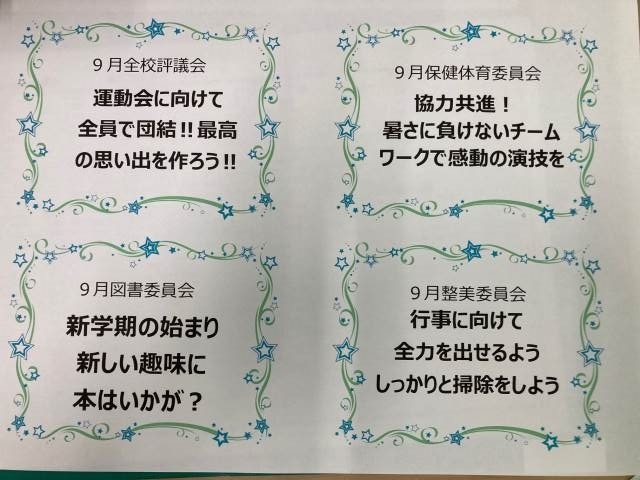 ９月全校評議会
運動会に向けて
全員で団結!!最高
の思い出を作ろう!!
９月保健体育委員会
協力共進！
暑さに負けないチーム
ワークで感動の演技を
９月図書委員会
新学期の始まり
新しい趣味に
本はいかが？
９月整美委員会
行事に向けて
全力を出せるよう
しっかりと掃除をしよう